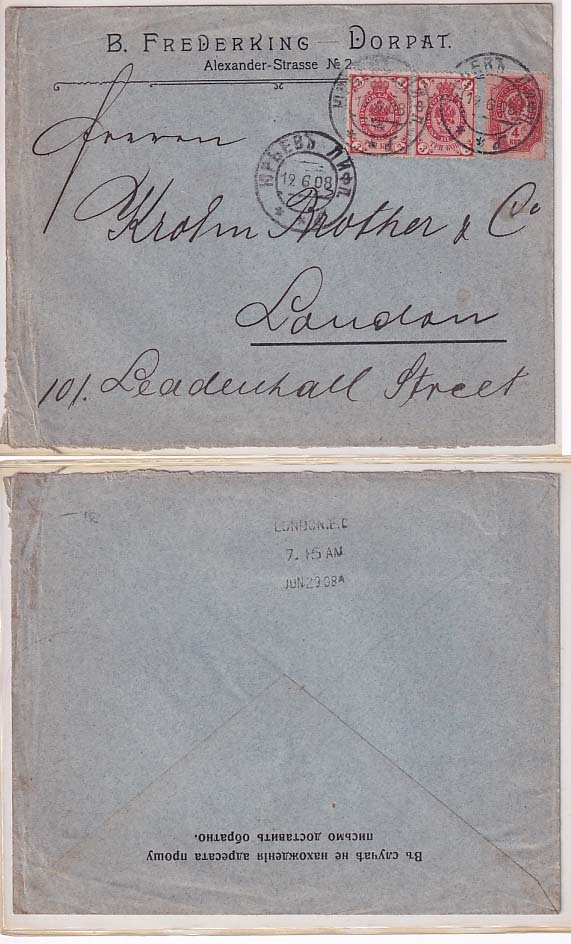 B. FREDERKING — DORPAT.
Alexander-Strasse № 2
Herren
Krohn Brother & Co
London
101. Leadenhall Street
ЮРЬЕВЪ ЛИФЛ.
12 6 08
LONDON.E.C
7.15 AM
JUN 29 08A
Въ случаѣ не нахожденія адресата прошу
письмо доставить обратно.